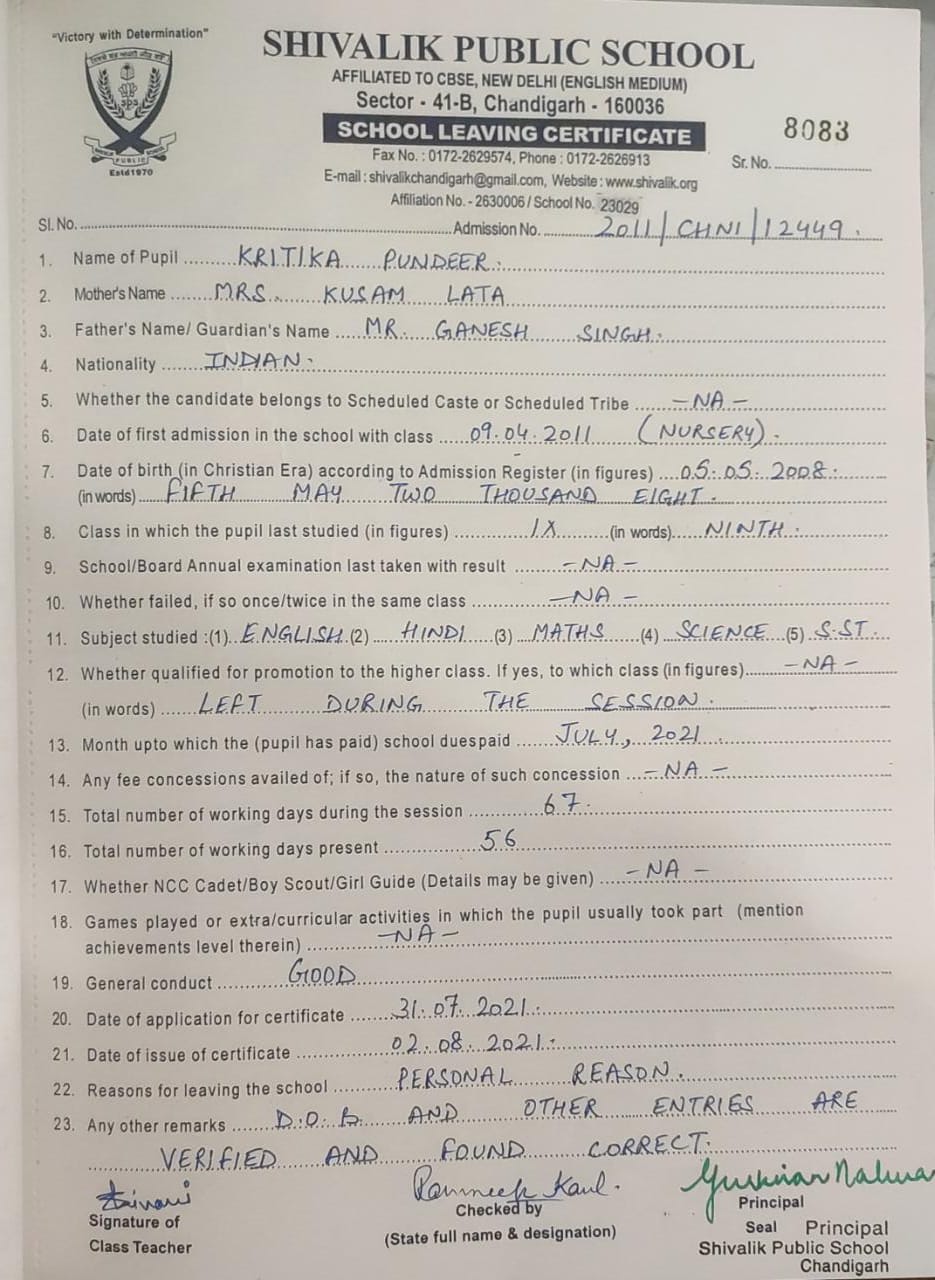 "Victory with Determination"
SHIVALIK PUBLIC SCHOOL
AFFILIATED TO CBSE, NEW DELHI (ENGLISH MEDIUM)
Sector - 41-B, Chandigarh - 160036
SCHOOL LEAVING CERTIFICATE
8083
Fax No. : 0172-2629574, Phone : 0172-2626913
Sr. No. ....................
E-mail : shivalikchandigarh@gmail.com, Website : www.shivalik.org
Affiliation No. - 2630006 / School No. 23029
sps
PUBLIC
Estd 1970
Sl. No. .................... Admission No. 2011/CHNI/12449.
1. Name of Pupil KRITIKA PUNDEER.
2. Mother's Name MRS. KUSAM LATA
3. Father's Name/ Guardian's Name MR. GANESH SINGH.
4. Nationality INDIAN.
5. Whether the candidate belongs to Scheduled Caste or Scheduled Tribe -NA-
6. Date of first admission in the school with class 09.04.2011 (NURSERY).
7. Date of birth (in Christian Era) according to Admission Register (in figures) 05.05.2008.
(in words) FIFTH MAY TWO THOUSAND EIGHT.
8. Class in which the pupil last studied (in figures) IX (in words) NINTH.
9. School/Board Annual examination last taken with result -NA-
10. Whether failed, if so once/twice in the same class -NA-
11. Subject studied :(1) ENGLISH (2) HINDI (3) MATHS (4) SCIENCE (5) S.ST.
12. Whether qualified for promotion to the higher class. If yes, to which class (in figures) -NA-
(in words) LEFT DURING THE SESSION.
13. Month upto which the (pupil has paid) school duespaid JULY, 2021.
14. Any fee concessions availed of; if so, the nature of such concession -NA-
15. Total number of working days during the session 67.
16. Total number of working days present 56
17. Whether NCC Cadet/Boy Scout/Girl Guide (Details may be given) -NA-
18. Games played or extra/curricular activities in which the pupil usually took part (mention
achievements level therein) -NA-
19. General conduct GOOD
20. Date of application for certificate 31.07.2021.
21. Date of issue of certificate 02.08.2021.
22. Reasons for leaving the school PERSONAL REASON.
23. Any other remarks D.O.B. AND OTHER ENTRIES ARE
VERIFIED AND FOUND CORRECT.
Signature of
Class Teacher
Kaul.
Checked by
(State full name & designation)
Principal
Seal Principal
Shivalik Public School
Chandigarh